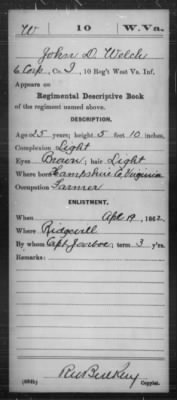 W 10 W.Va.
John D. Welch
Corp, Co. I, 10 Reg't West Va. Inf.
Appears on
Regimental Descriptive Book
of the regiment named above.
DESCRIPTION.
Age 25 years; height 5 feet 10 inches.
Complexion Light
Eyes Brown; hair Light
Where born Hampshire Co Virginia
Occupation Farmer
ENLISTMENT.
When Apl 19, 1862.
Where Ridgevill
By whom Capt Jarboe; term 3 y'rs.
Remarks:
Copyist.